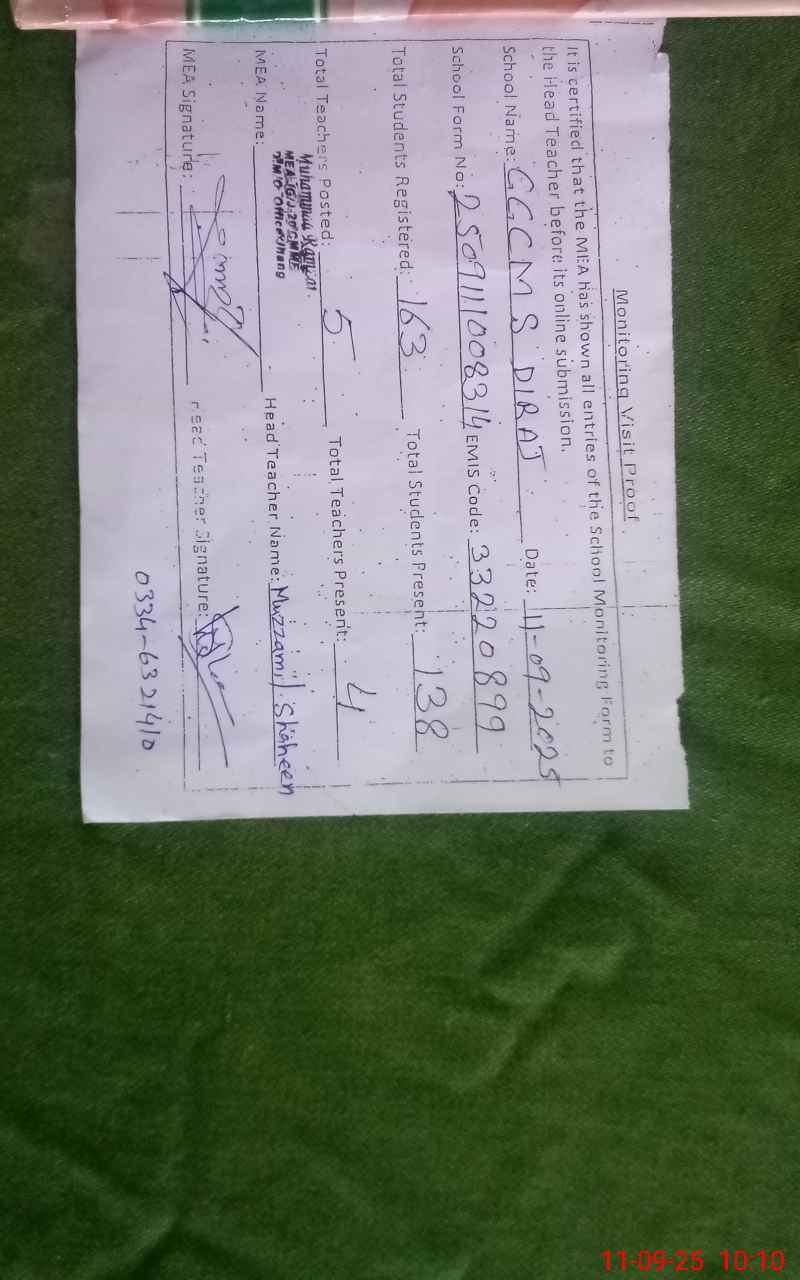 Monitoring Visit Proof
It is certified that the MEA has shown all entries of the School Monitoring Form to
the Head Teacher before its online submission.
School Name: GGCMS DIRAJ Date: 11-09-2025
School Form No: 2509111008314 EMIS Code: 33220899
Total Students Registered: 163 Total Students Present: 138
Total Teachers Posted: 5 Total Teachers Present: 4
Muhammad
MEA Name: Head Teacher Name: Muzzamil Shaheen
MEA Signature: Head Teacher Signature:
0334-6321410
11-09-25 10:10